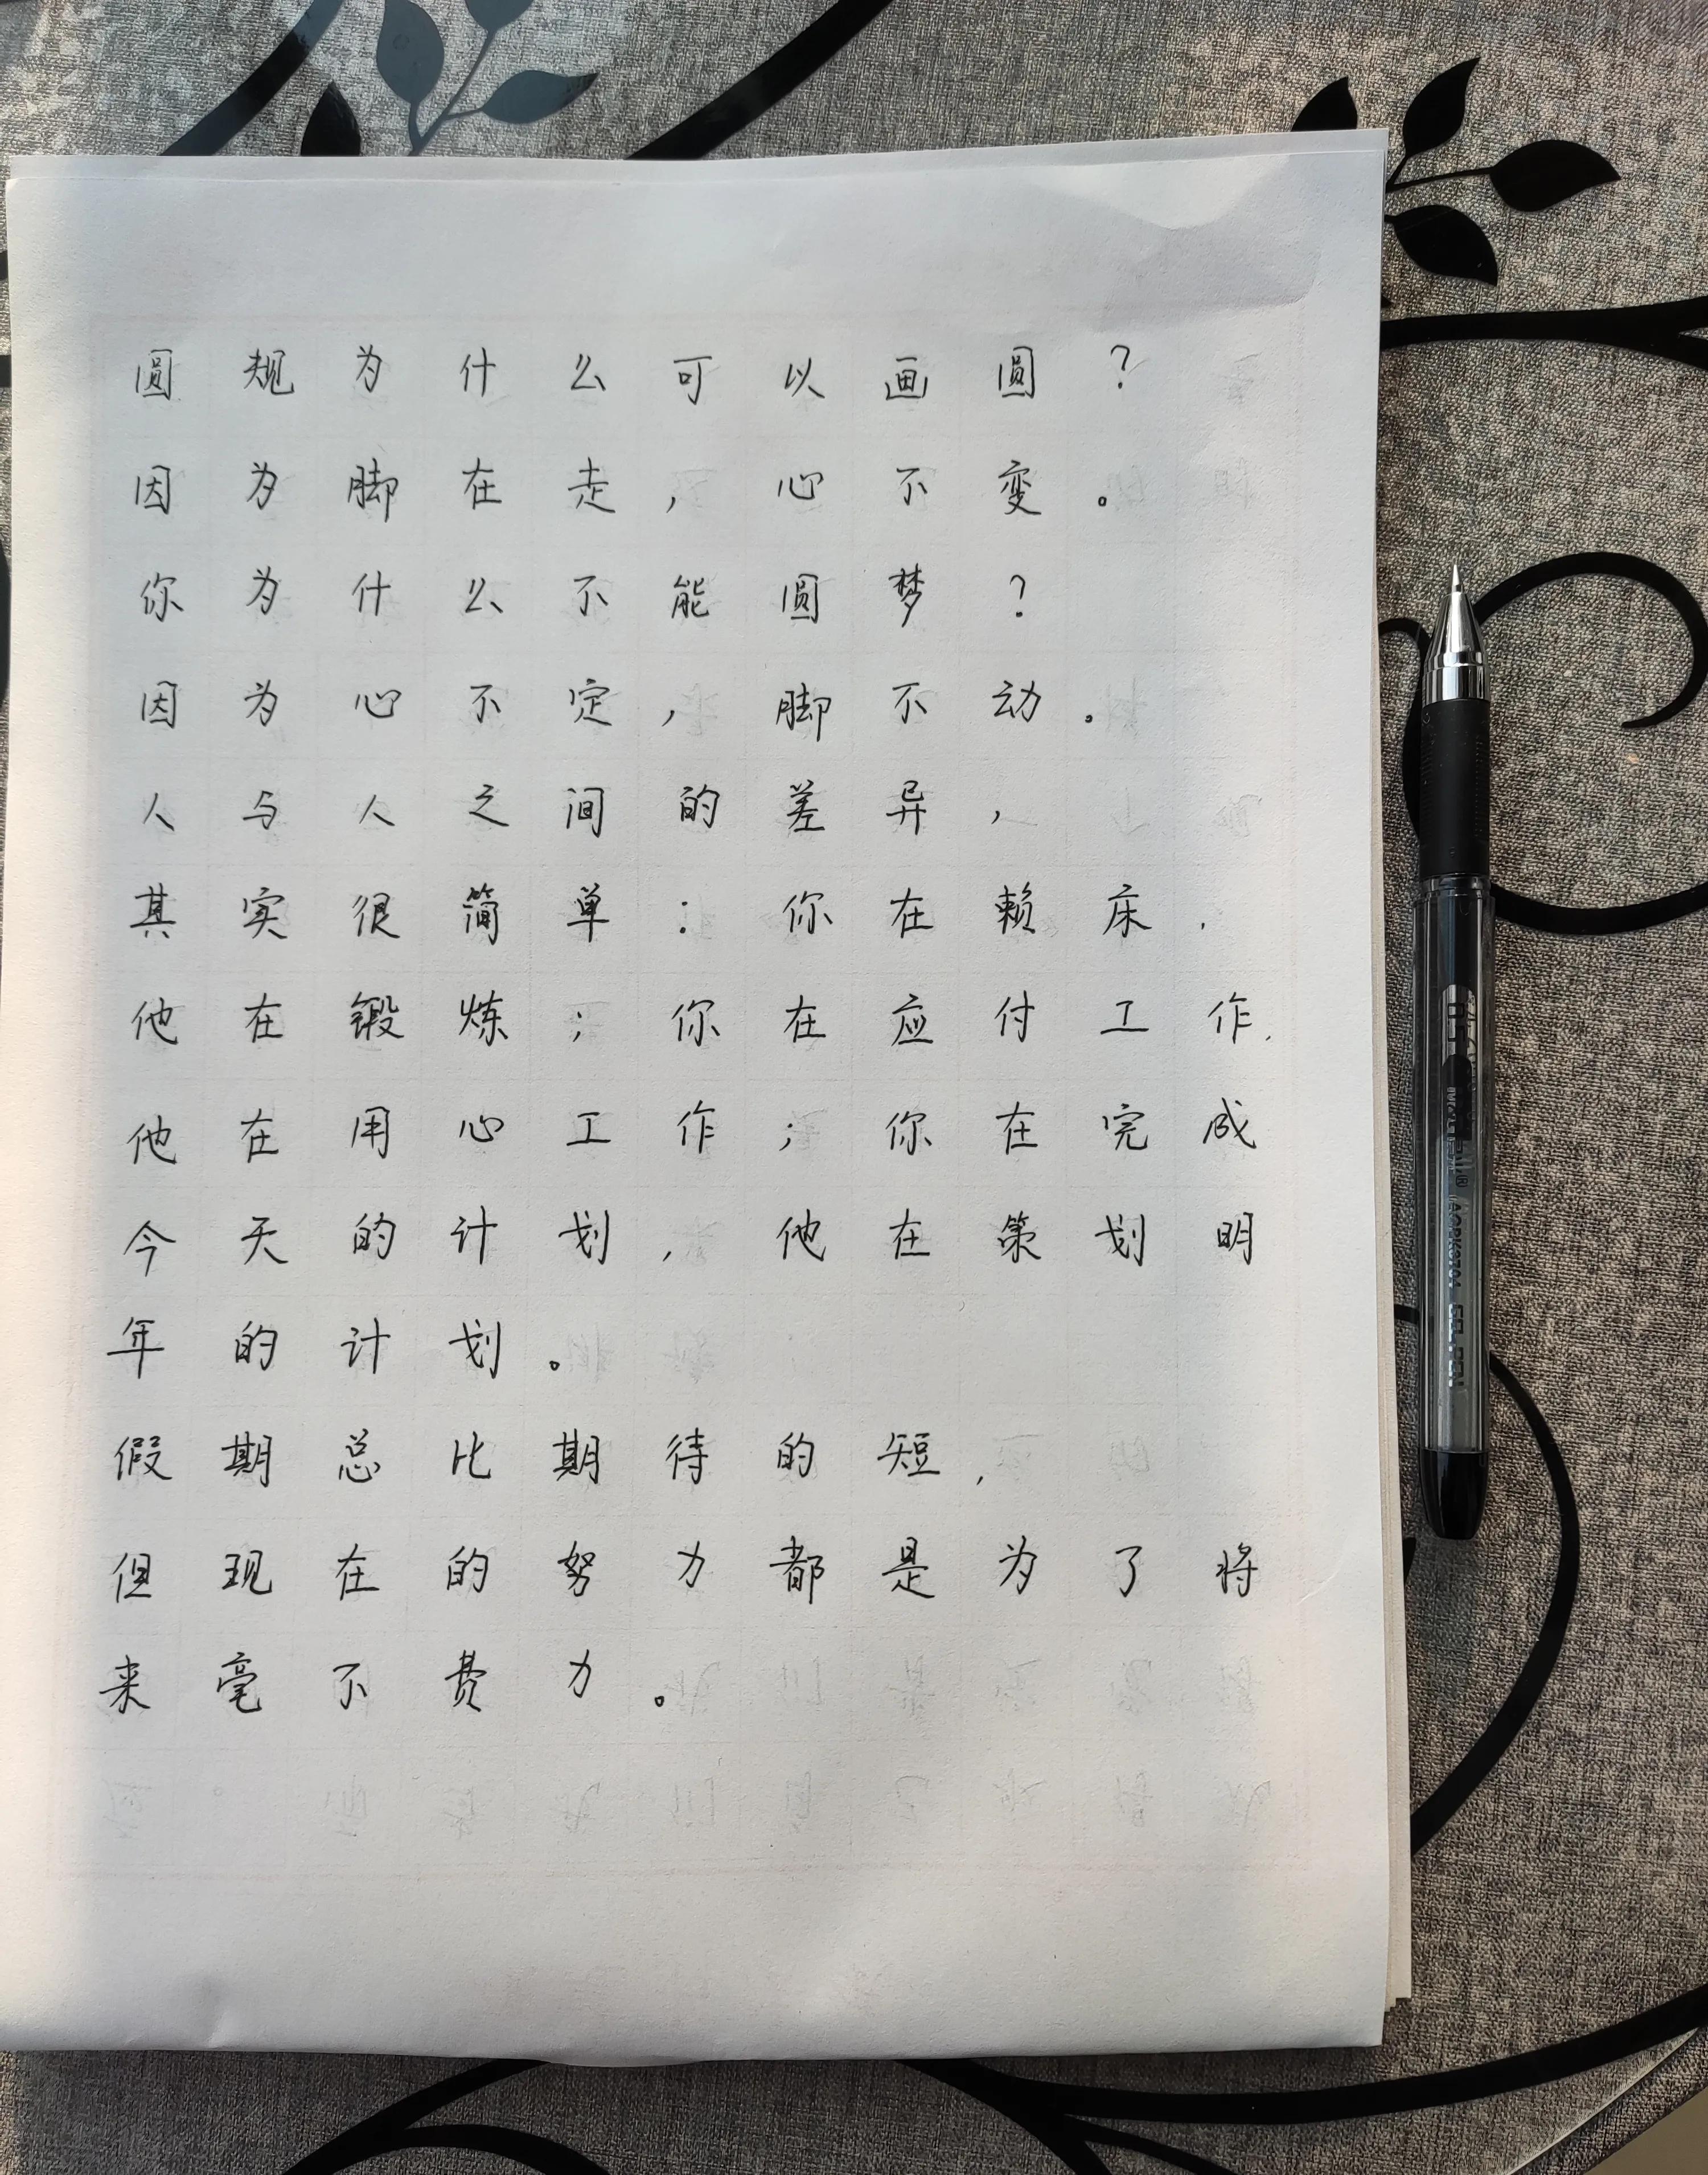 圆规为什么可以画圆？
因为脚在走，心不变。
你为什么不能圆梦？
因为心不定，脚不动。
人与人之间的差异，
其实很简单：你在赖床，
他在锻炼；你在应付工作，
他在用心工作；你在完成
今天的计划，他在策划明
年的计划。
假期总比期待的短，
但现在的努力都是为了将
来毫不费力。
AGPK3704 GEL PEN